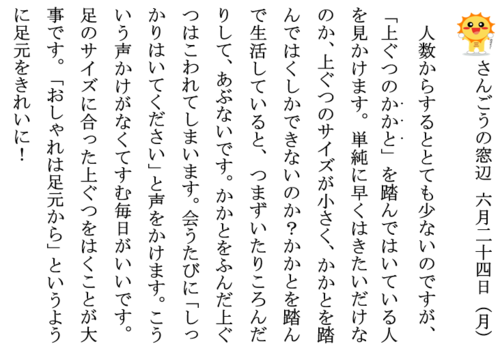 さんごうの窓辺　六月二十四日　（月）
　人数からするととても少ないのですが、
「上ぐつのかかと」を踏んではいている人
を見かけます。単純に早くはきたいだけな
のか、上ぐつのサイズが小さく、かかとを踏
んではくしかできないのか？かかとを踏ん
で生活していると、つまずいたりころんだ
りして、あぶないです。かかとをふんだ上ぐ
つはこわれてしまいます。会うたびに「しっ
かりはいてください」と声をかけます。こう
いう声かけがなくてすむ毎日がいいです。
足のサイズに合った上ぐつをはくことが大
事です。「おしゃれは足元から」というよう
に足元をきれいに！